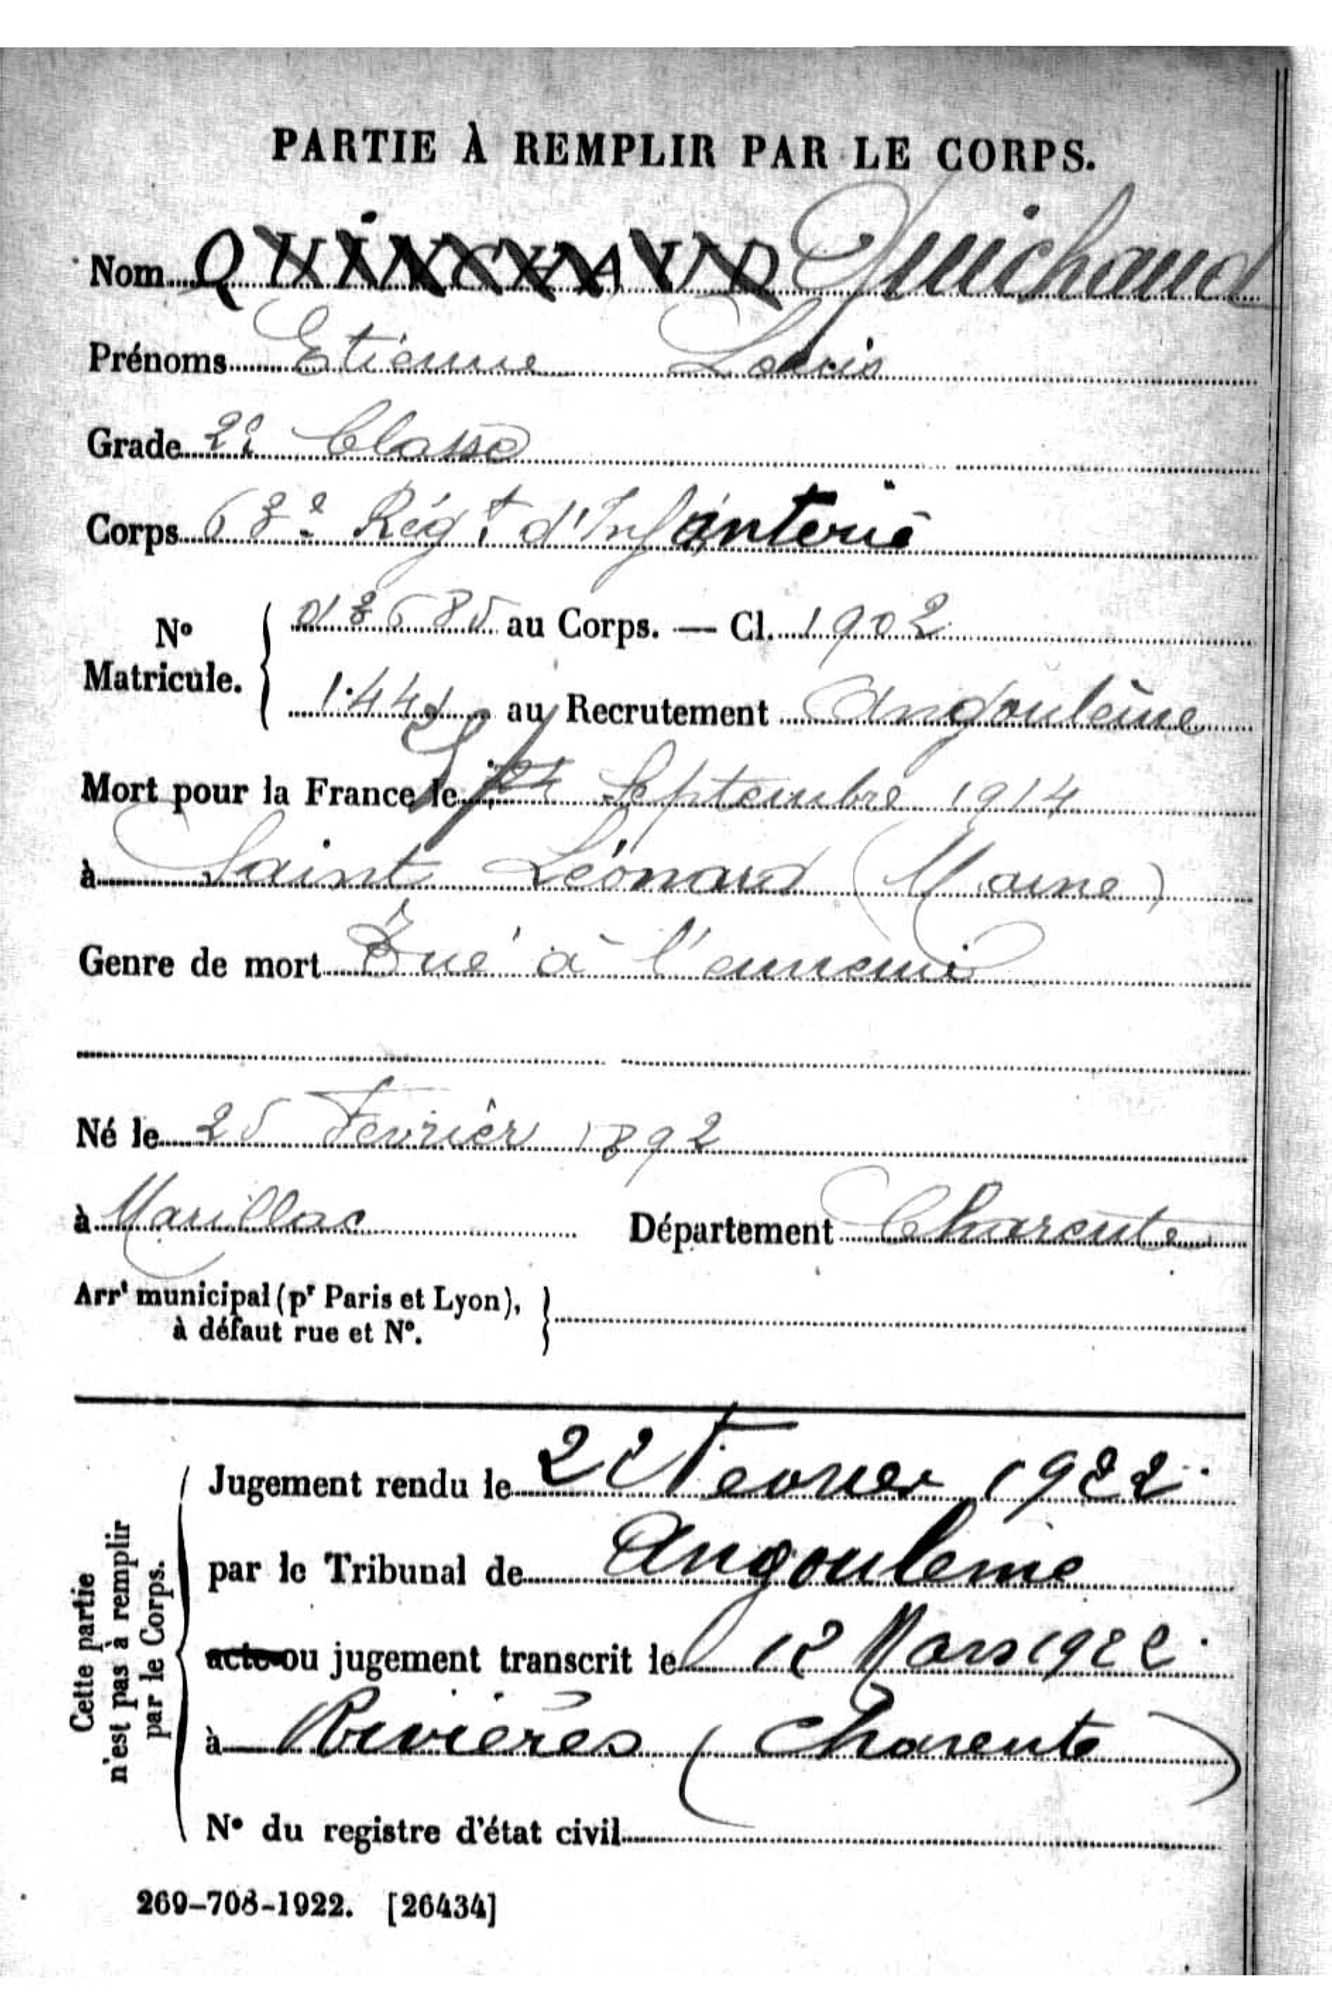 PARTIE À REMPLIR PAR LE CORPS.
Nom QUINCHAUD Quichaud
Prénoms Etienne Louis
Grade 2e Classe
Corps 63e Régt d'Infanterie
No Matricule. 013685 au Corps. — Cl. 1902
1.441 au Recrutement Angoulême
Mort pour la France le 24 Septembre 1914
à Saint Léonard (Marne)
Genre de mort Tué à l'ennemi
Né le 25 Fevrier 1892
à Marillac Département Charente
Arrt municipal (pr Paris et Lyon),
à défaut rue et No.
Cette partie
n'est pas à remplir
par le Corps.
Jugement rendu le 22 Fevrier 1922.
par le Tribunal de Angouleme
acte ou jugement transcrit le 12 Mars 1922.
à Rivières (Charente)
No du registre d'état civil
269-708-1922. [26434]